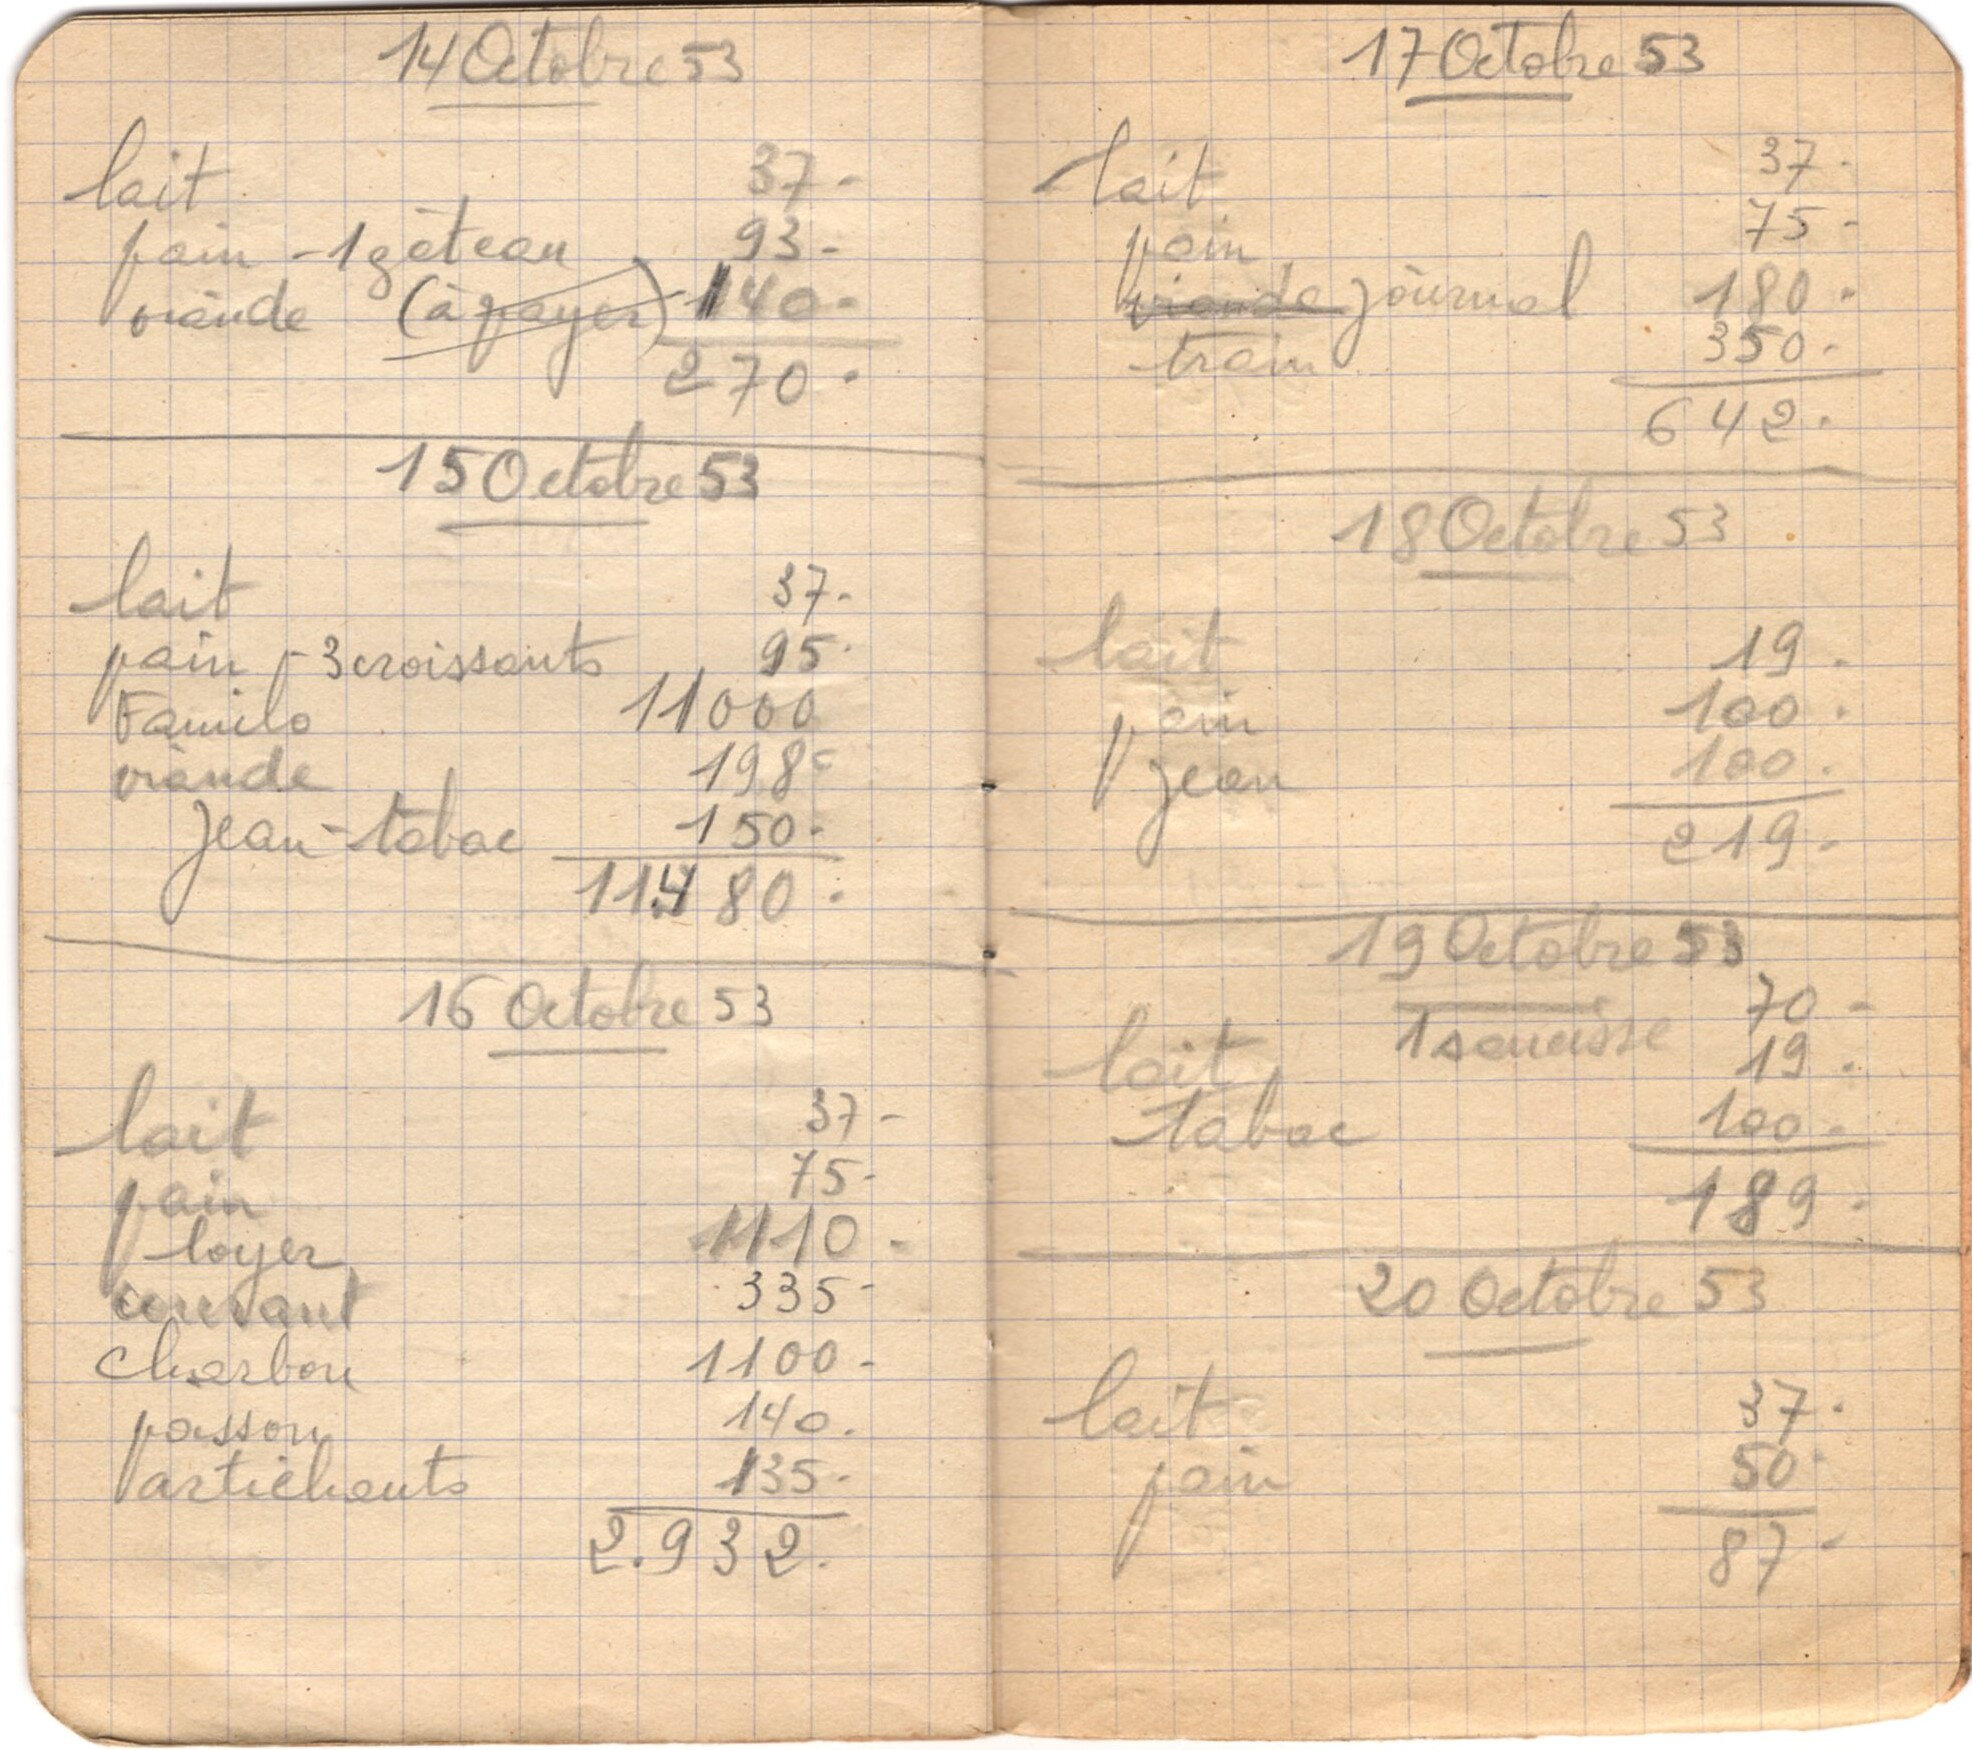 14 Octobre 53
lait 37-
pain - 1 gâteau 93-
viande (à payer) 140-
270.
15 Octobre 53
lait 37-
pain - 3 croissants 95.
Familo 11000
viande 198-
Jean-tabac 150-
11.480.
16 Octobre 53
lait 37-
pain 75-
loyer 1110-
courant 335-
charbon 1100-
poisson 140.
artichauts 135-
2.932.
17 Octobre 53
lait 37-
pain 75-
viande journal 180.
train 350.
642.
18 Octobre 53
lait 19.
pain 100.
Jean 100.
219.
19 Octobre 53
1 saucisse 70-
lait 19.
tabac 100-
189.
20 Octobre 53
lait 37.
pain 50.
87-